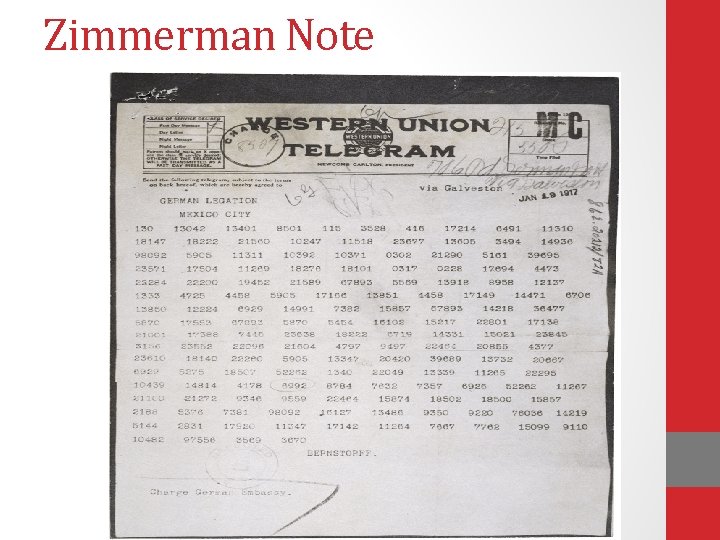 Zimmerman Note
CLASS OF SERVICE DESIRED
Fast Day Message
Day Letter
Night Message
Night Letter
Patrons should mark an X oppo-
OTHERWISE THE TELEGRAM
WILL BE TRANSMITTED AS A
FAST DAY MESSAGE.
CHARGE
WESTERN UNION
WESTERN UNION
TELEGRAM
NEWCOMB CARLTON, PRESIDENT
Time Filed
Send the following telegram, subject to the terms
on back hereof, which are hereby agreed to
via Galveston
JAN 19 1917
GERMAN LEGATION
MEXICO CITY
130 13042 13401 8501 115 3528 416 17214 6491 11310
18147 18222 21560 10247 11518 23677 13605 3494 14936
98092 5905 11311 10392 10371 0302 21290 5161 39695
23571 17504 11269 18276 18101 0317 0228 17694 4473
22284 22200 19452 21589 67893 5569 13918 8958 12137
1333 4725 4458 5905 17166 13851 4458 17149 14471 6706
13850 12224 6929 14991 7382 15857 67893 14218 36477
5870 17553 67893 5870 5454 16102 15217 22801 17138
21001 17388 7446 23638 18222 6719 14331 15021 23845
3156 23552 22096 21604 4797 9497 22464 20855 4377
23610 18140 22260 5905 13347 20420 39689 13732 20667
6929 5275 18507 52262 1340 22049 13339 11265 22295
10439 14814 4178 6992 8784 7632 7357 6926 52262 11267
21100 21272 9346 9559 22464 15874 18502 18500 15857
2188 5376 7381 98092 16127 13486 9350 9220 76036 14219
5144 2831 17920 11347 17142 11264 7667 7762 15099 9110
10482 97556 3569 3670
BERNSTORFF.
Charge German Embassy.